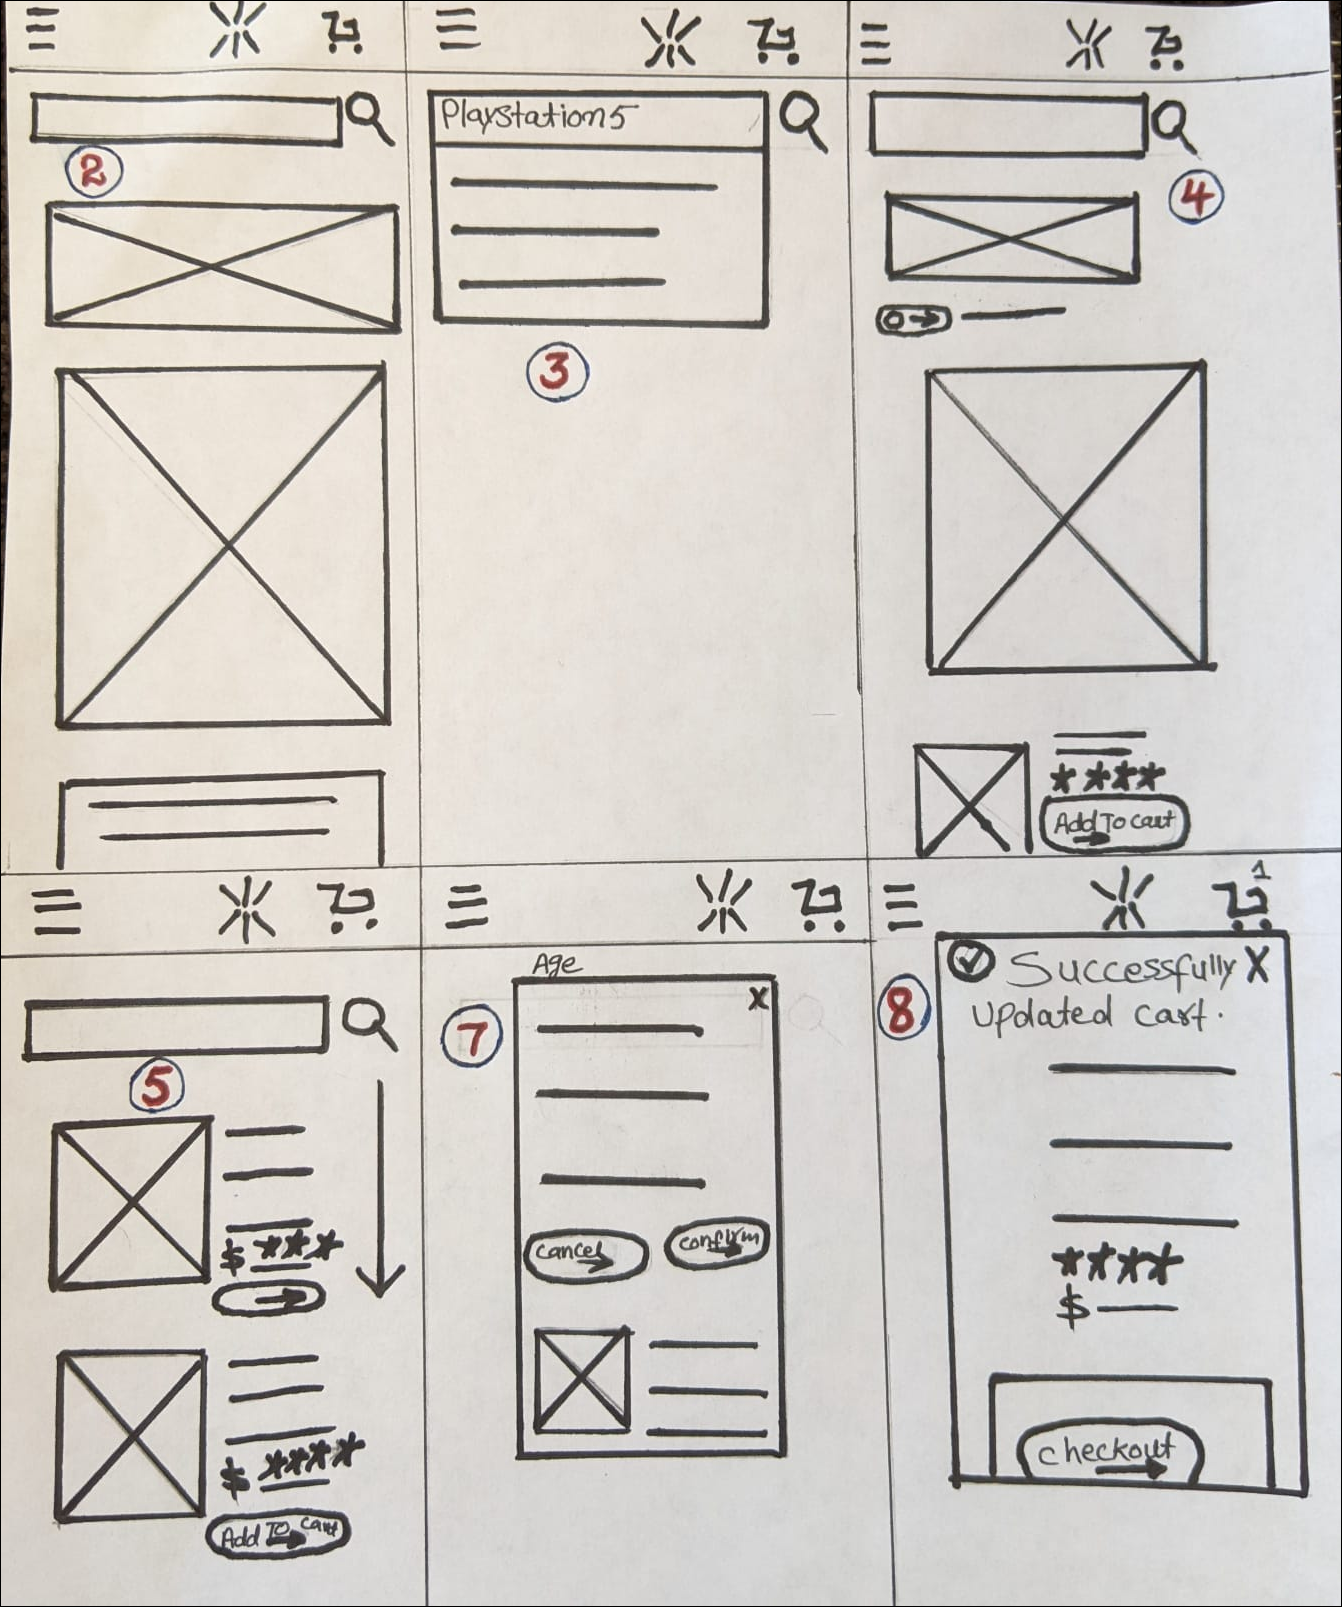 2
Playstation5
3
4
Add To cart
5
$
$
Add To cart
Age
X
7
cancel
confirm
1
8
Successfully X
updated cart.
$
checkout